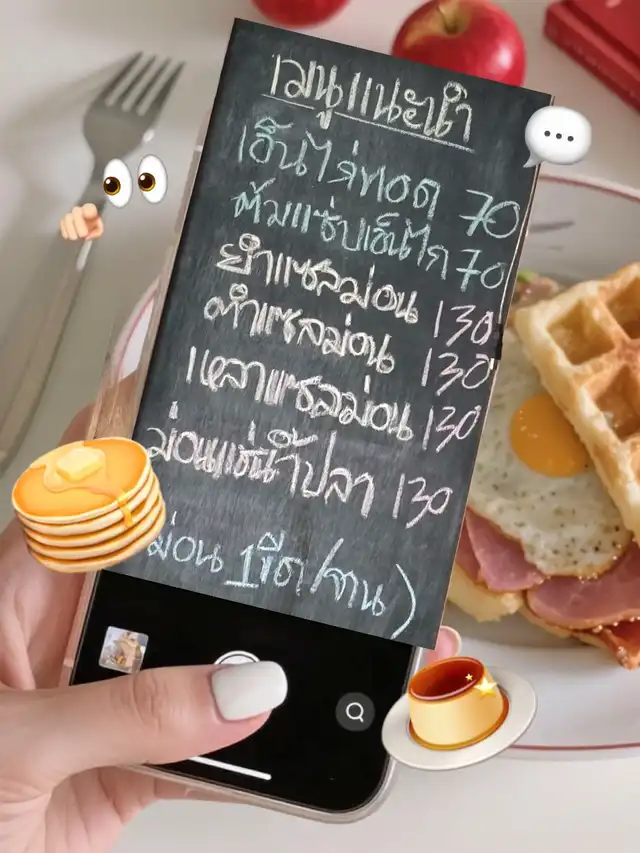 เมนูแนะนำ
เอ็นไก่ทอด 70
ต้มแซ่บเอ็นไก่ 70
ยำแซลม่อน 130
ตำแซลม่อน 130
เหลาแซลม่อน 130
ม่อนแช่น้ำปลา 130
ม่อน 1ขีด/จาน)